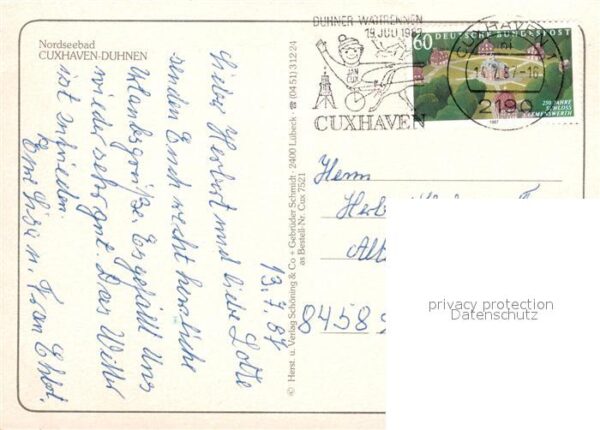 Nordseebad
CUXHAVEN-DUHNEN
13.7.87
Lieber Herbert und liebe Lotte
senden Euch recht herzliche
Urlaubsgrüße. Es gefällt uns
wieder sehr gut. Das Wetter
ist zufrieden.
Eure Lisa u. Fran
© Herst. u. Verlag Schöning & Co + Gebrüder Schmidt · 2400 Lübeck · ☎ (04 51) 3 12 24
as Bestell-Nr. Cux 7521
DUHNER WATTRENNEN
19. JULI 1987
CUXHAVEN
60
DEUTSCHE BUNDESPOST
250 JAHRE
SCHLOSS
CLEMENSWERTH
1987
CUXHAVEN 1
14.7.87-16
2190
Herrn
8458
privacy protection
Datenschutz